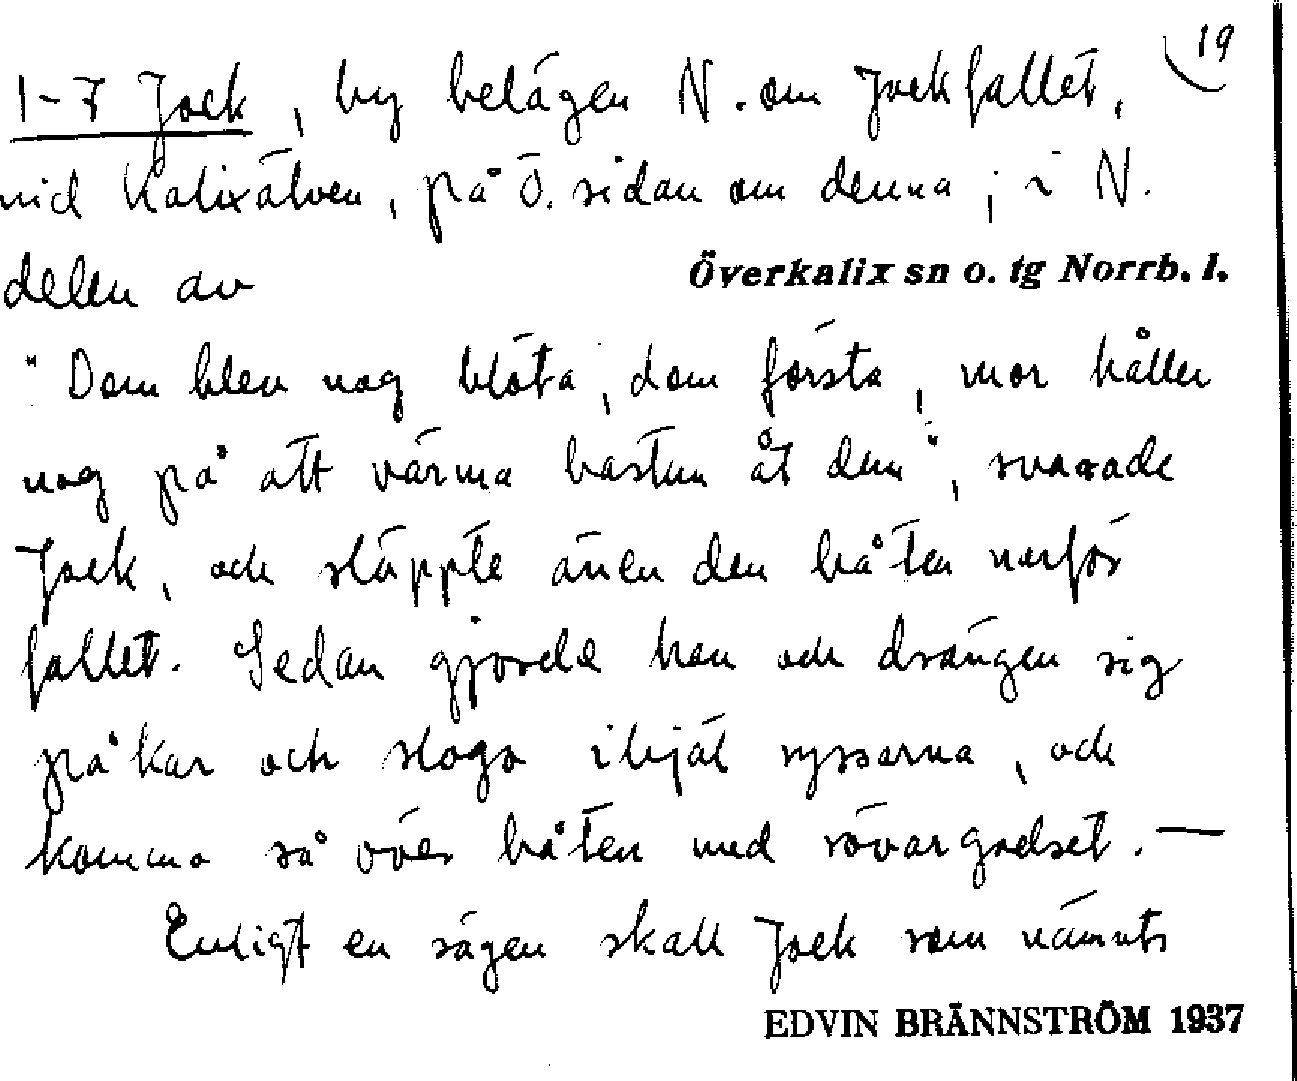 19
1-7 Jock, by belägen N. om Jockfallet,
vid Kalixälven, på Ö. sidan om denna; i N.
delen av Överkalix sn o. tg Norrb. l.
"Dom blev nog blöta, dom första, mor håller
nog på att värma bastun åt dem", svarade
Jock, och släppte även den båten nerför
fallet. Sedan gjorde han och drängen sig
påkar och slogo ihjäl ryssarna, och
komma så över båten med rövargodset. —
Enligt en sägen skall Jock som nämnts
EDVIN BRÄNNSTRÖM 1937